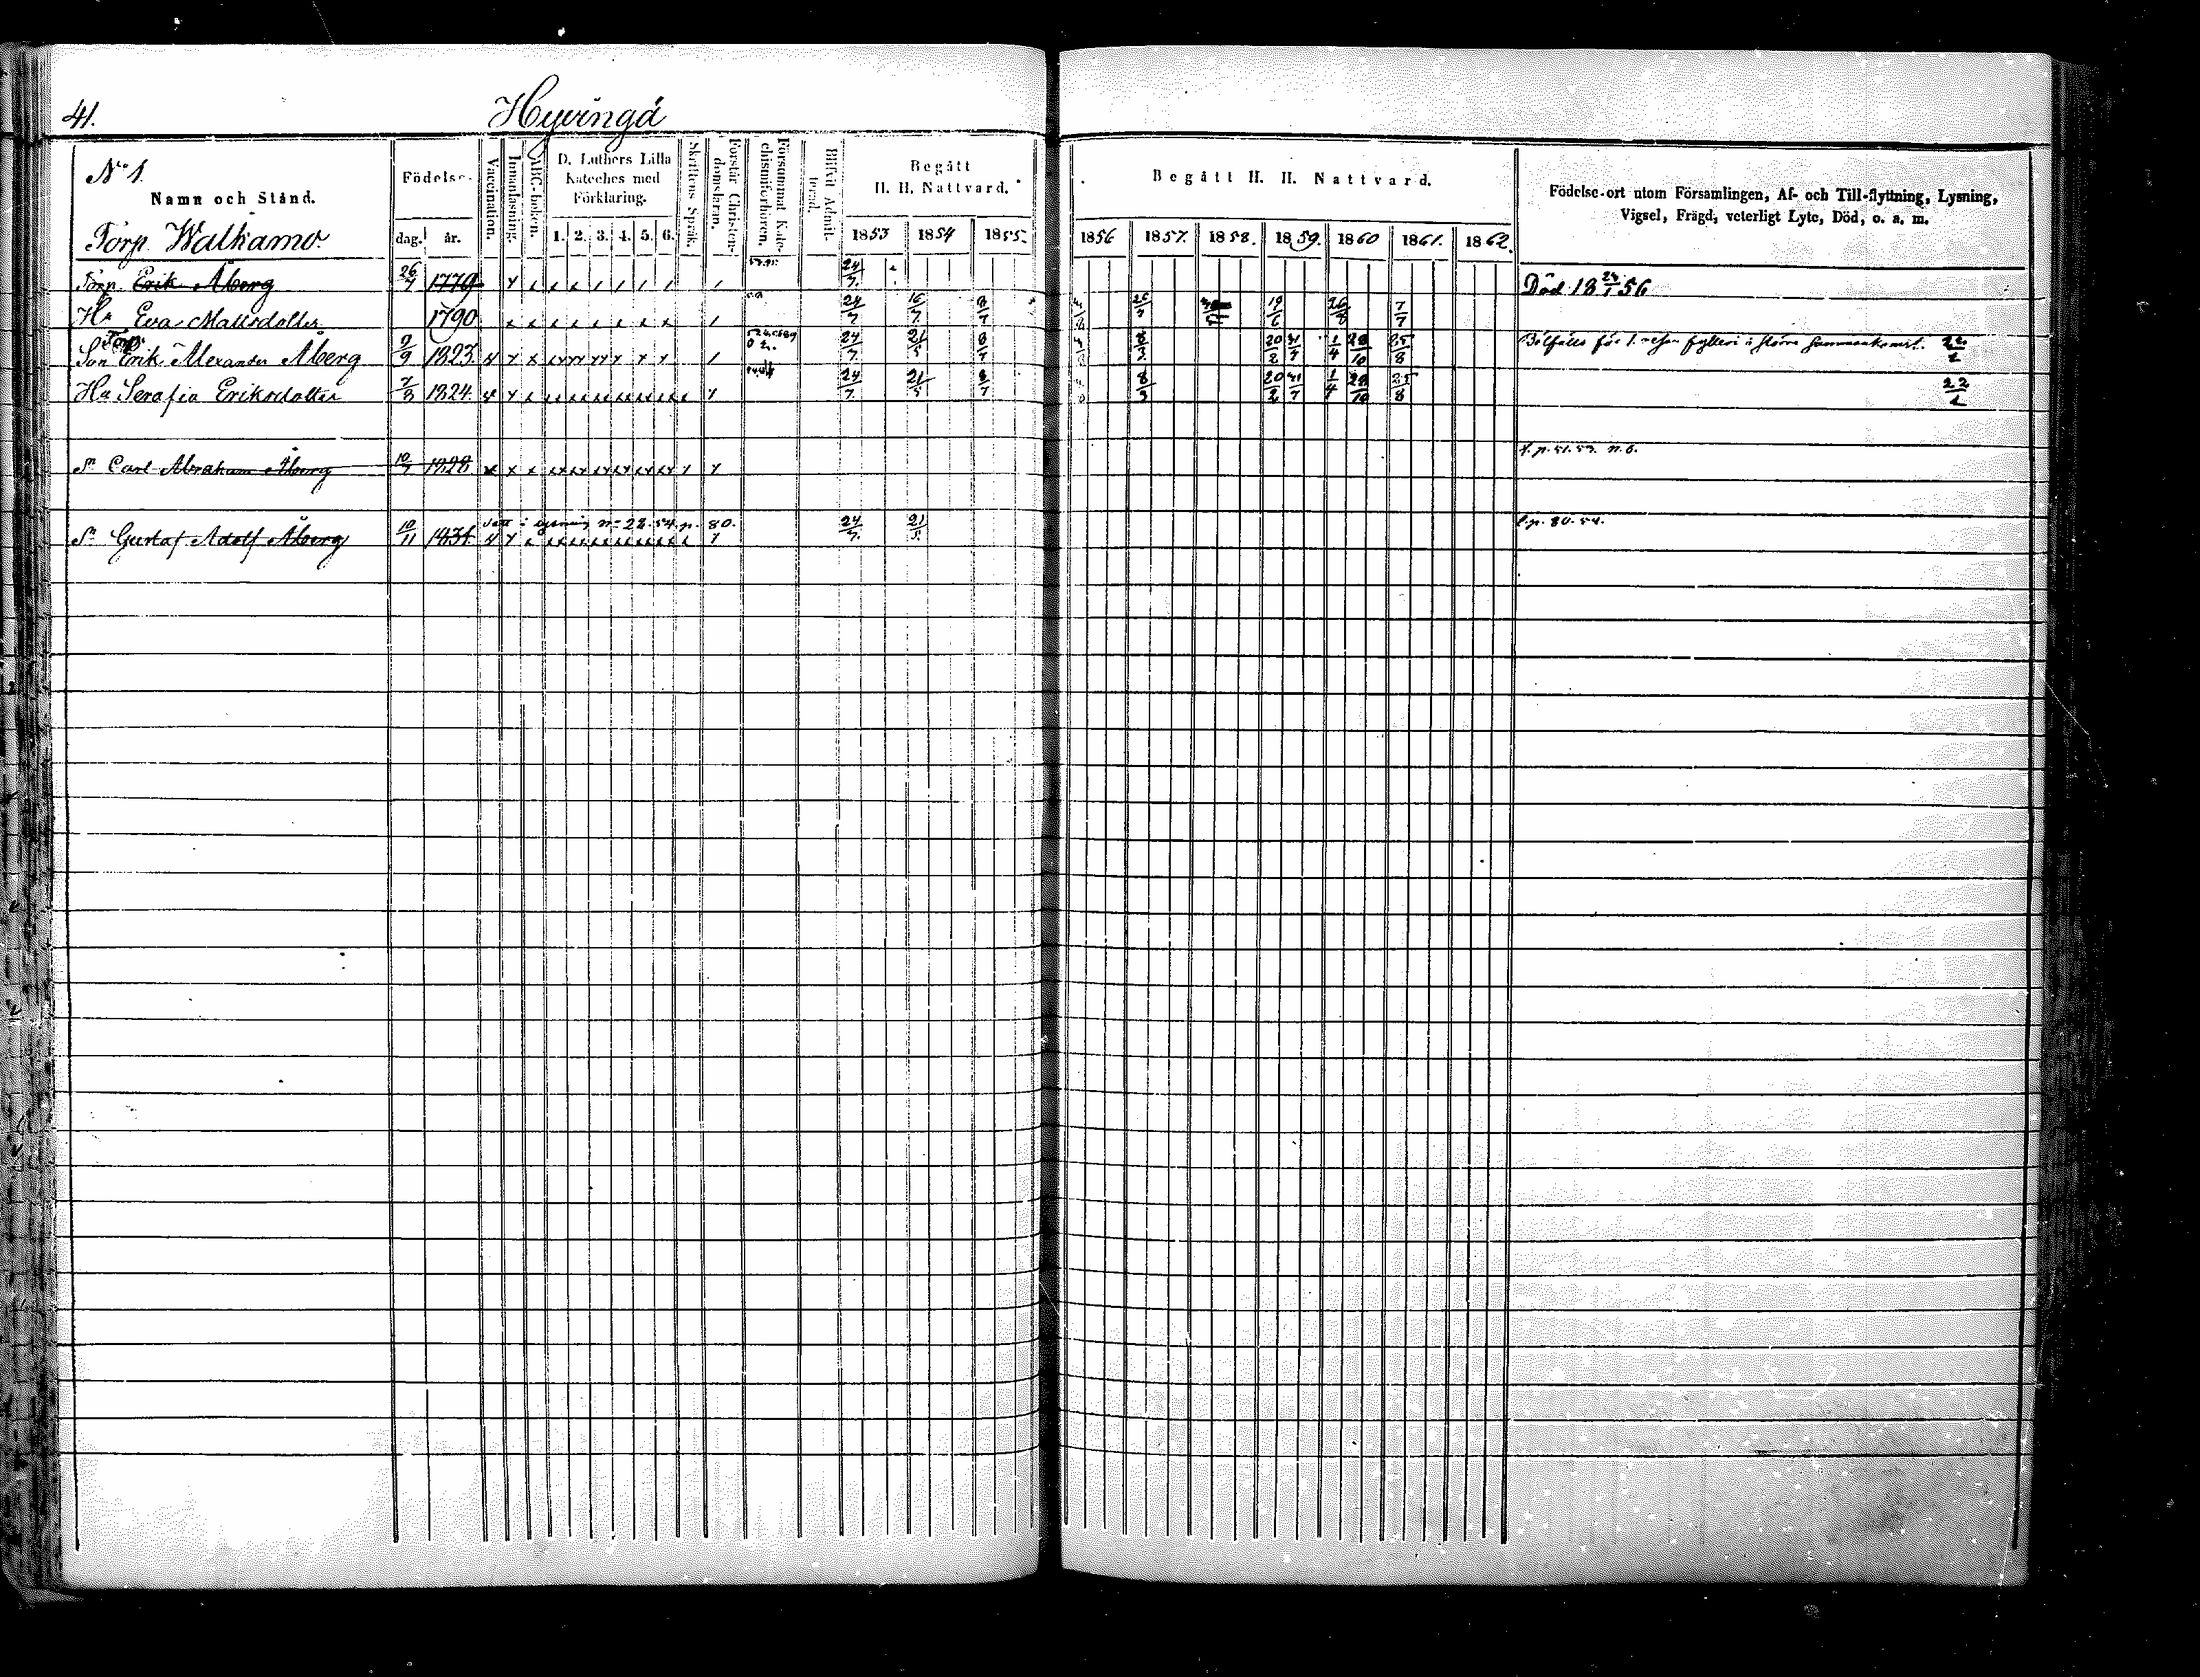 41.
Hyvingä
No 1.
Namn och Stånd.
Torp. Walkamo.
Födelse.
dag. år.
Vaccination.
Innanläsning.
ABC-boken.
D. Luthers Lilla
Kateches med
Förklaring.
1. 2. 3. 4. 5. 6.
Skriftens Språk.
Förstår Christen-
domsläran.
Försummat Kate-
chismiförhören.
Blifvit Admit-
terad.
Begått
H. H. Nattvard.
1853 1854 1855.
Begått H. H. Nattvard.
1856 1857. 1858. 1859. 1860 1861. 1862.
Födelse-ort utom Församlingen, Af- och Till-flyttning, Lysning,
Vigsel, Frägd, veterligt Lyte, Död, o. a. m.
Torp. Erik Åberg 26/7 1779 24/7. Död 18 56
Hu Eva Mattsdotter 1790 24/7 16/7 8/7 19/6 26/8 7/7
Torp.
Son Erik Alexander Åberg 9/9 1823. 24/7. 21/5 8/7 8/3 20/2 1/4 28/10 25/8 för 1. resan fylleri
Hu Serafia Eriksdotter 7/3 1824. 24/7. 21/5 8/7 8/3 20/2 1/4 28/10 25/8 22/1
Sn Carl Abraham Åberg 10/7 1828. f. p. 51. 53. n. 6.
Sn Gustaf Adolf Åberg 10/11 1831. n= 28. 54. p. 80. 24/7. 21/5. f. p. 80. 54.